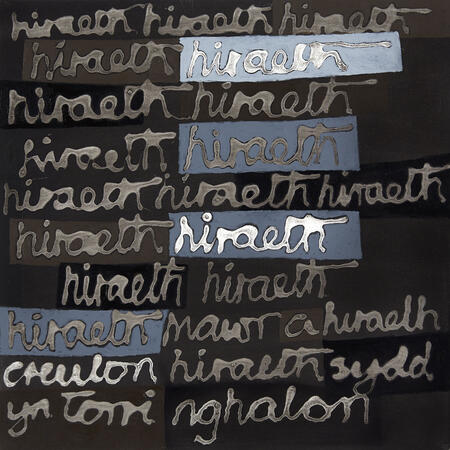 hiraeth hiraeth hiraeth
hiraeth hiraeth
hiraeth hiraeth
hiraeth hiraeth
hiraeth hiraeth hiraeth
hiraeth hiraeth
hiraeth hiraeth
hiraeth mawr a hiraeth
creulon hiraeth sydd
yn torri nghalon